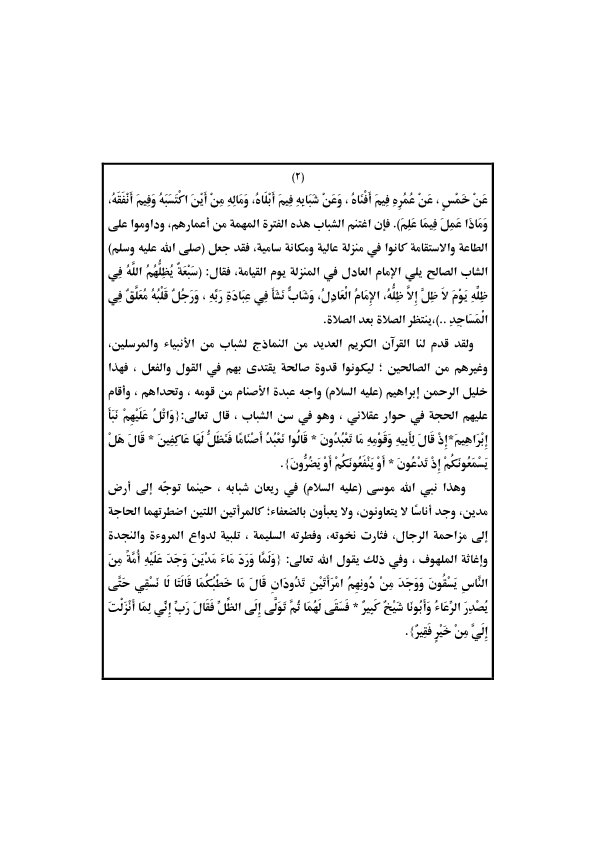 (٢)
عَنْ خَمْسٍ ، عَنْ عُمُرِهِ فِيمَ أَفْنَاهُ ، وَعَنْ شَبَابِهِ فِيمَ أَبْلَاهُ، وَمَالِهِ مِنْ أَيْنَ اكْتَسَبَهُ وَفِيمَ أَنْفَقَهُ،
وَمَاذَا عَمِلَ فِيمَا عَلِمَ). فإن اغتنم الشباب هذه الفترة المهمة من أعمارهم، وداوموا على
الطاعة والاستقامة كانوا في منزلة عالية ومكانة سامية، فقد جعل (صلى الله عليه وسلم)
الشاب الصالح يلي الإمام العادل في المنزلة يوم القيامة، فقال: (سَبْعَةٌ يُظِلُّهُمُ اللَّهُ فِي
ظِلِّهِ يَوْمَ لاَ ظِلَّ إِلاَّ ظِلُّهُ، الإِمَامُ الْعَادِلُ، وَشَابٌّ نَشَأَ فِي عِبَادَةِ رَبِّهِ ، وَرَجُلٌ قَلْبُهُ مُعَلَّقٌ فِي
الْمَسَاجِدِ ..)،ينتظر الصلاة بعد الصلاة.
ولقد قدم لنا القرآن الكريم العديد من النماذج لشباب من الأنبياء والمرسلين،
وغيرهم من الصالحين ؛ ليكونوا قدوة صالحة يقتدى بهم في القول والفعل ، فهذا
خليل الرحمن إبراهيم (عليه السلام) واجه عبدة الأصنام من قومه ، وتحداهم ، وأقام
عليهم الحجة في حوار عقلاني ، وهو في سن الشباب ، قال تعالى:{وَاتْلُ عَلَيْهِمْ نَبَأَ
إِبْرَاهِيمَ*إِذْ قَالَ لِأَبِيهِ وَقَوْمِهِ مَا تَعْبُدُونَ * قَالُوا نَعْبُدُ أَصْنَامًا فَنَظَلُّ لَهَا عَاكِفِينَ * قَالَ هَلْ
يَسْمَعُونَكُمْ إِذْ تَدْعُونَ * أَوْ يَنْفَعُونَكُمْ أَوْ يَضُرُّونَ}.
وهذا نبي الله موسى (عليه السلام) في ريعان شبابه ، حينما توجّه إلى أرض
مدين، وجد أناسًا لا يتعاونون، ولا يعبأون بالضعفاء؛ كالمرأتين اللتين اضطرتهما الحاجة
إلى مزاحمة الرجال، فثارت نخوته، وفطرته السليمة ، تلبية لدواع المروءة والنجدة
وإغاثة الملهوف ، وفي ذلك يقول الله تعالى: {وَلَمَّا وَرَدَ مَاءَ مَدْيَنَ وَجَدَ عَلَيْهِ أُمَّةً مِنَ
النَّاسِ يَسْقُونَ وَوَجَدَ مِنْ دُونِهِمُ امْرَأَتَيْنِ تَذُودَانِ قَالَ مَا خَطْبُكُمَا قَالَتَا لَا نَسْقِي حَتَّى
يُصْدِرَ الرِّعَاءُ وَأَبُونَا شَيْخٌ كَبِيرٌ * فَسَقَى لَهُمَا ثُمَّ تَوَلَّى إِلَى الظِّلِّ فَقَالَ رَبِّ إِنِّي لِمَا أَنْزَلْتَ
إِلَيَّ مِنْ خَيْرٍ فَقِيرٌ}.